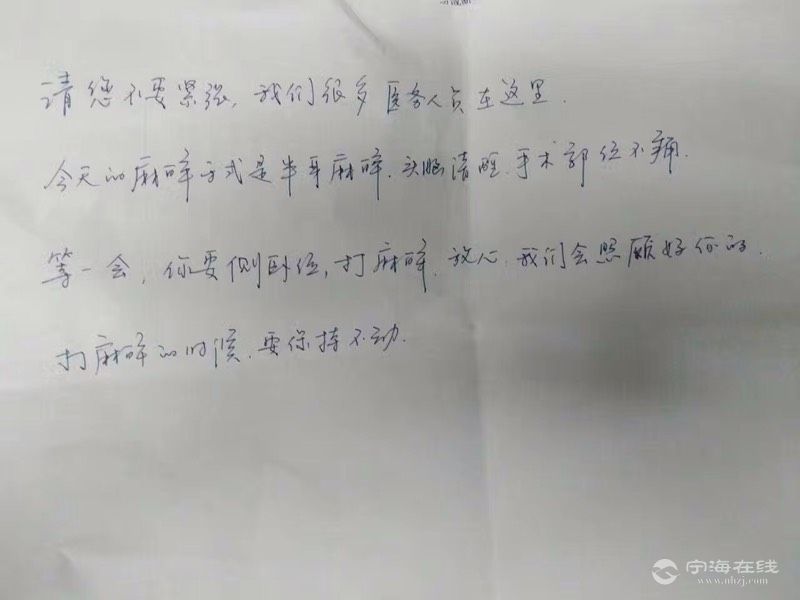 请您不要紧张，我们很多医务人员在这里.
今天的麻醉方式是半身麻醉.头脑清醒.手术部位不痛.
等一会，你要侧卧位，打麻醉.放心.我们会照顾好你的.
打麻醉的时候.要保持不动.
宁海在线
www.nhzj.com